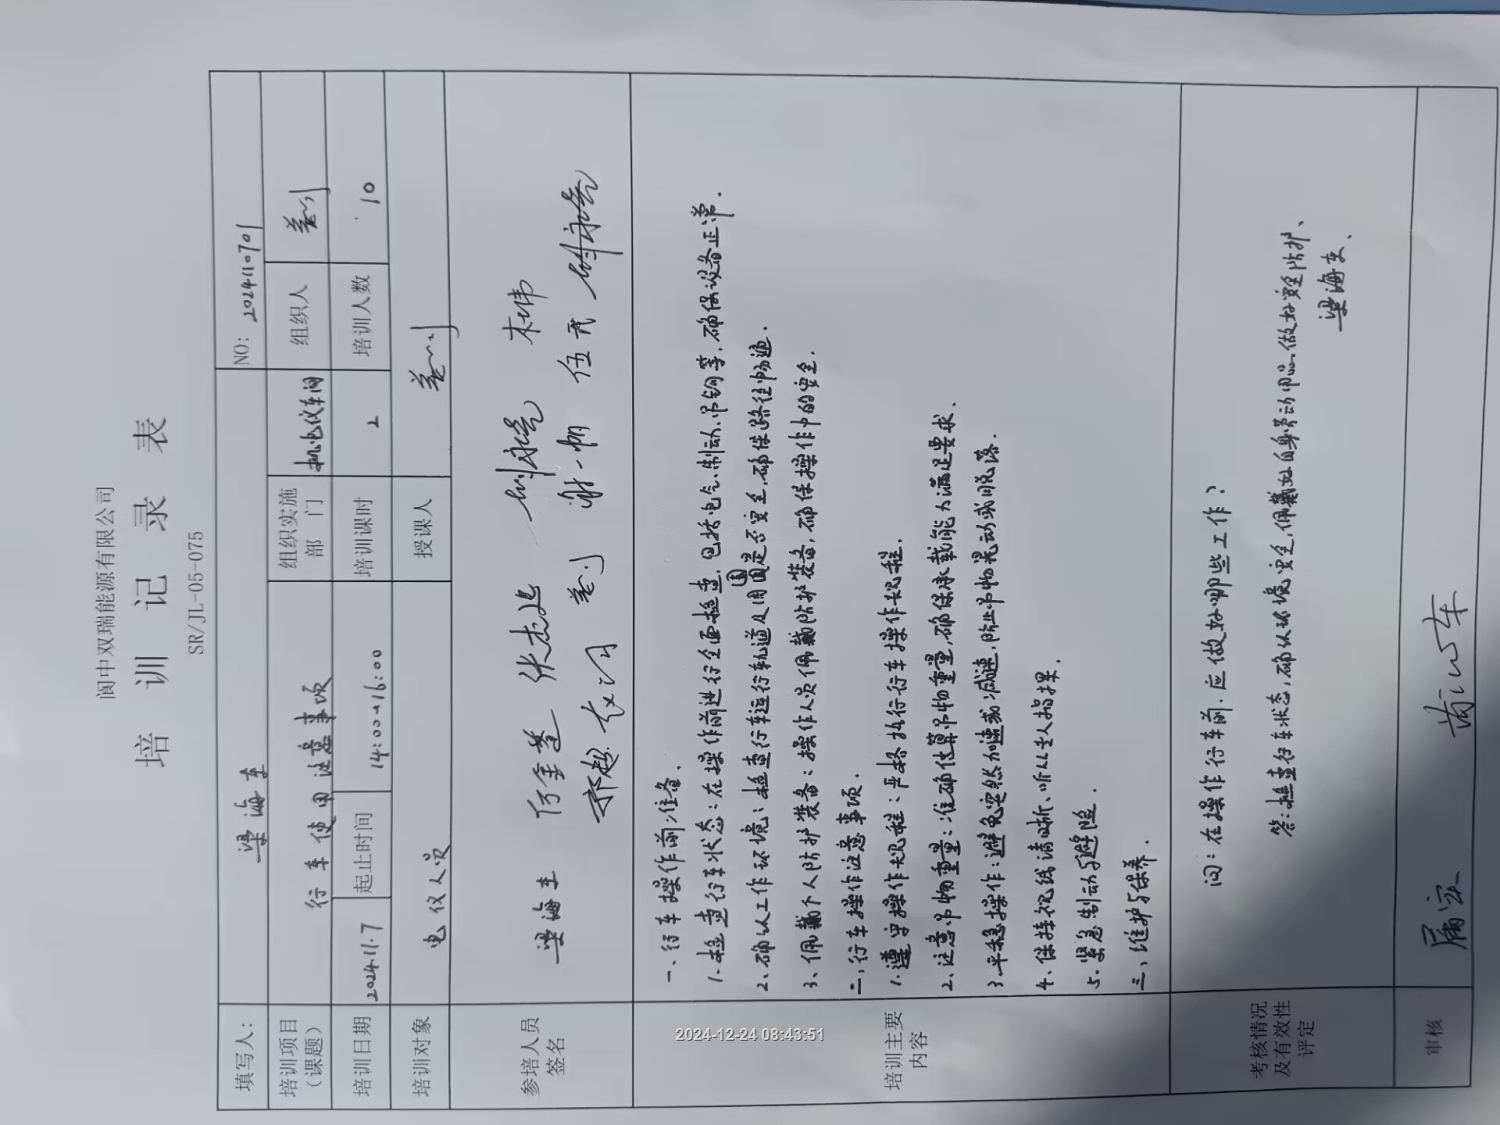 阆中双瑞能源有限公司
培训记录表
SR/JL-05-075
填写人: 梁海东 NO: 2024110701
培训项目（课题） 行车使用注意事项 组织实施部门 机电仪车间 组织人
培训日期 2024.11.7 起止时间 14:00~16:00 培训课时 2 培训人数 10
培训对象 电仪人员 授课人
参培人员签名 梁海东 张杰
郑超 谢一帆 伍
培训主要内容
一、行车操作前准备.
1.检查行车状态:在操作前进行全面检查,包括电气、制动、吊钩等,确保设备正常.
2、确认工作环境:检查行车运行轨道及周围是否安全,确保路径畅通.
3、佩戴个人防护装备:操作人员佩戴防护装备,确保操作中的安全.
二、行车操作注意事项.
1.遵守操作规程:严格执行行车操作规程.
2、注意吊物重量:准确估算吊物重量,确保承载能力满足要求.
3.平稳操作:避免突然加速或减速,防止吊物晃动或脱落.
4、保持视线清晰、听从专人指挥.
5、紧急制动与避险.
三、维护与保养.
考核情况及有效性评定
问:在操作行车前.应做好哪些工作?
答:检查行车状态,确认环境安全,佩戴好自身劳动用品.做好安全防护、
梁海东、
审核
2024-12-24 08:43:51